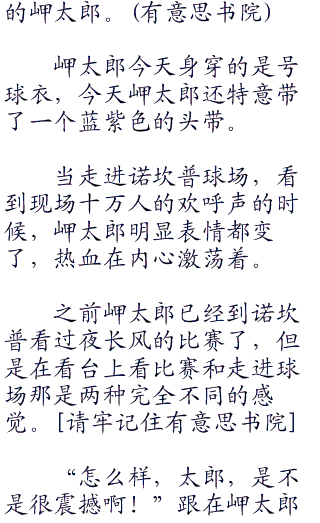 的岬太郎。(有意思书院)
岬太郎今天身穿的是号
球衣，今天岬太郎还特意带
了一个蓝紫色的头带。
当走进诺坎普球场，看
到现场十万人的欢呼声的时
候，岬太郎明显表情都变
了，热血在内心激荡着。
之前岬太郎已经到诺坎
普看过夜长风的比赛了，但
是在看台上看比赛和走进球
场那是两种完全不同的感
觉。[请牢记住有意思书院]
“怎么样，太郎，是不
是很震撼啊！”跟在岬太郎